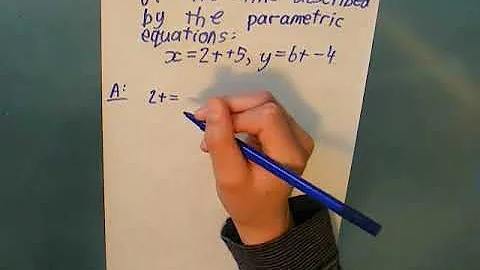 described
by the parametric
equations:
x=2t+5, y=6t-4
A: 2t=